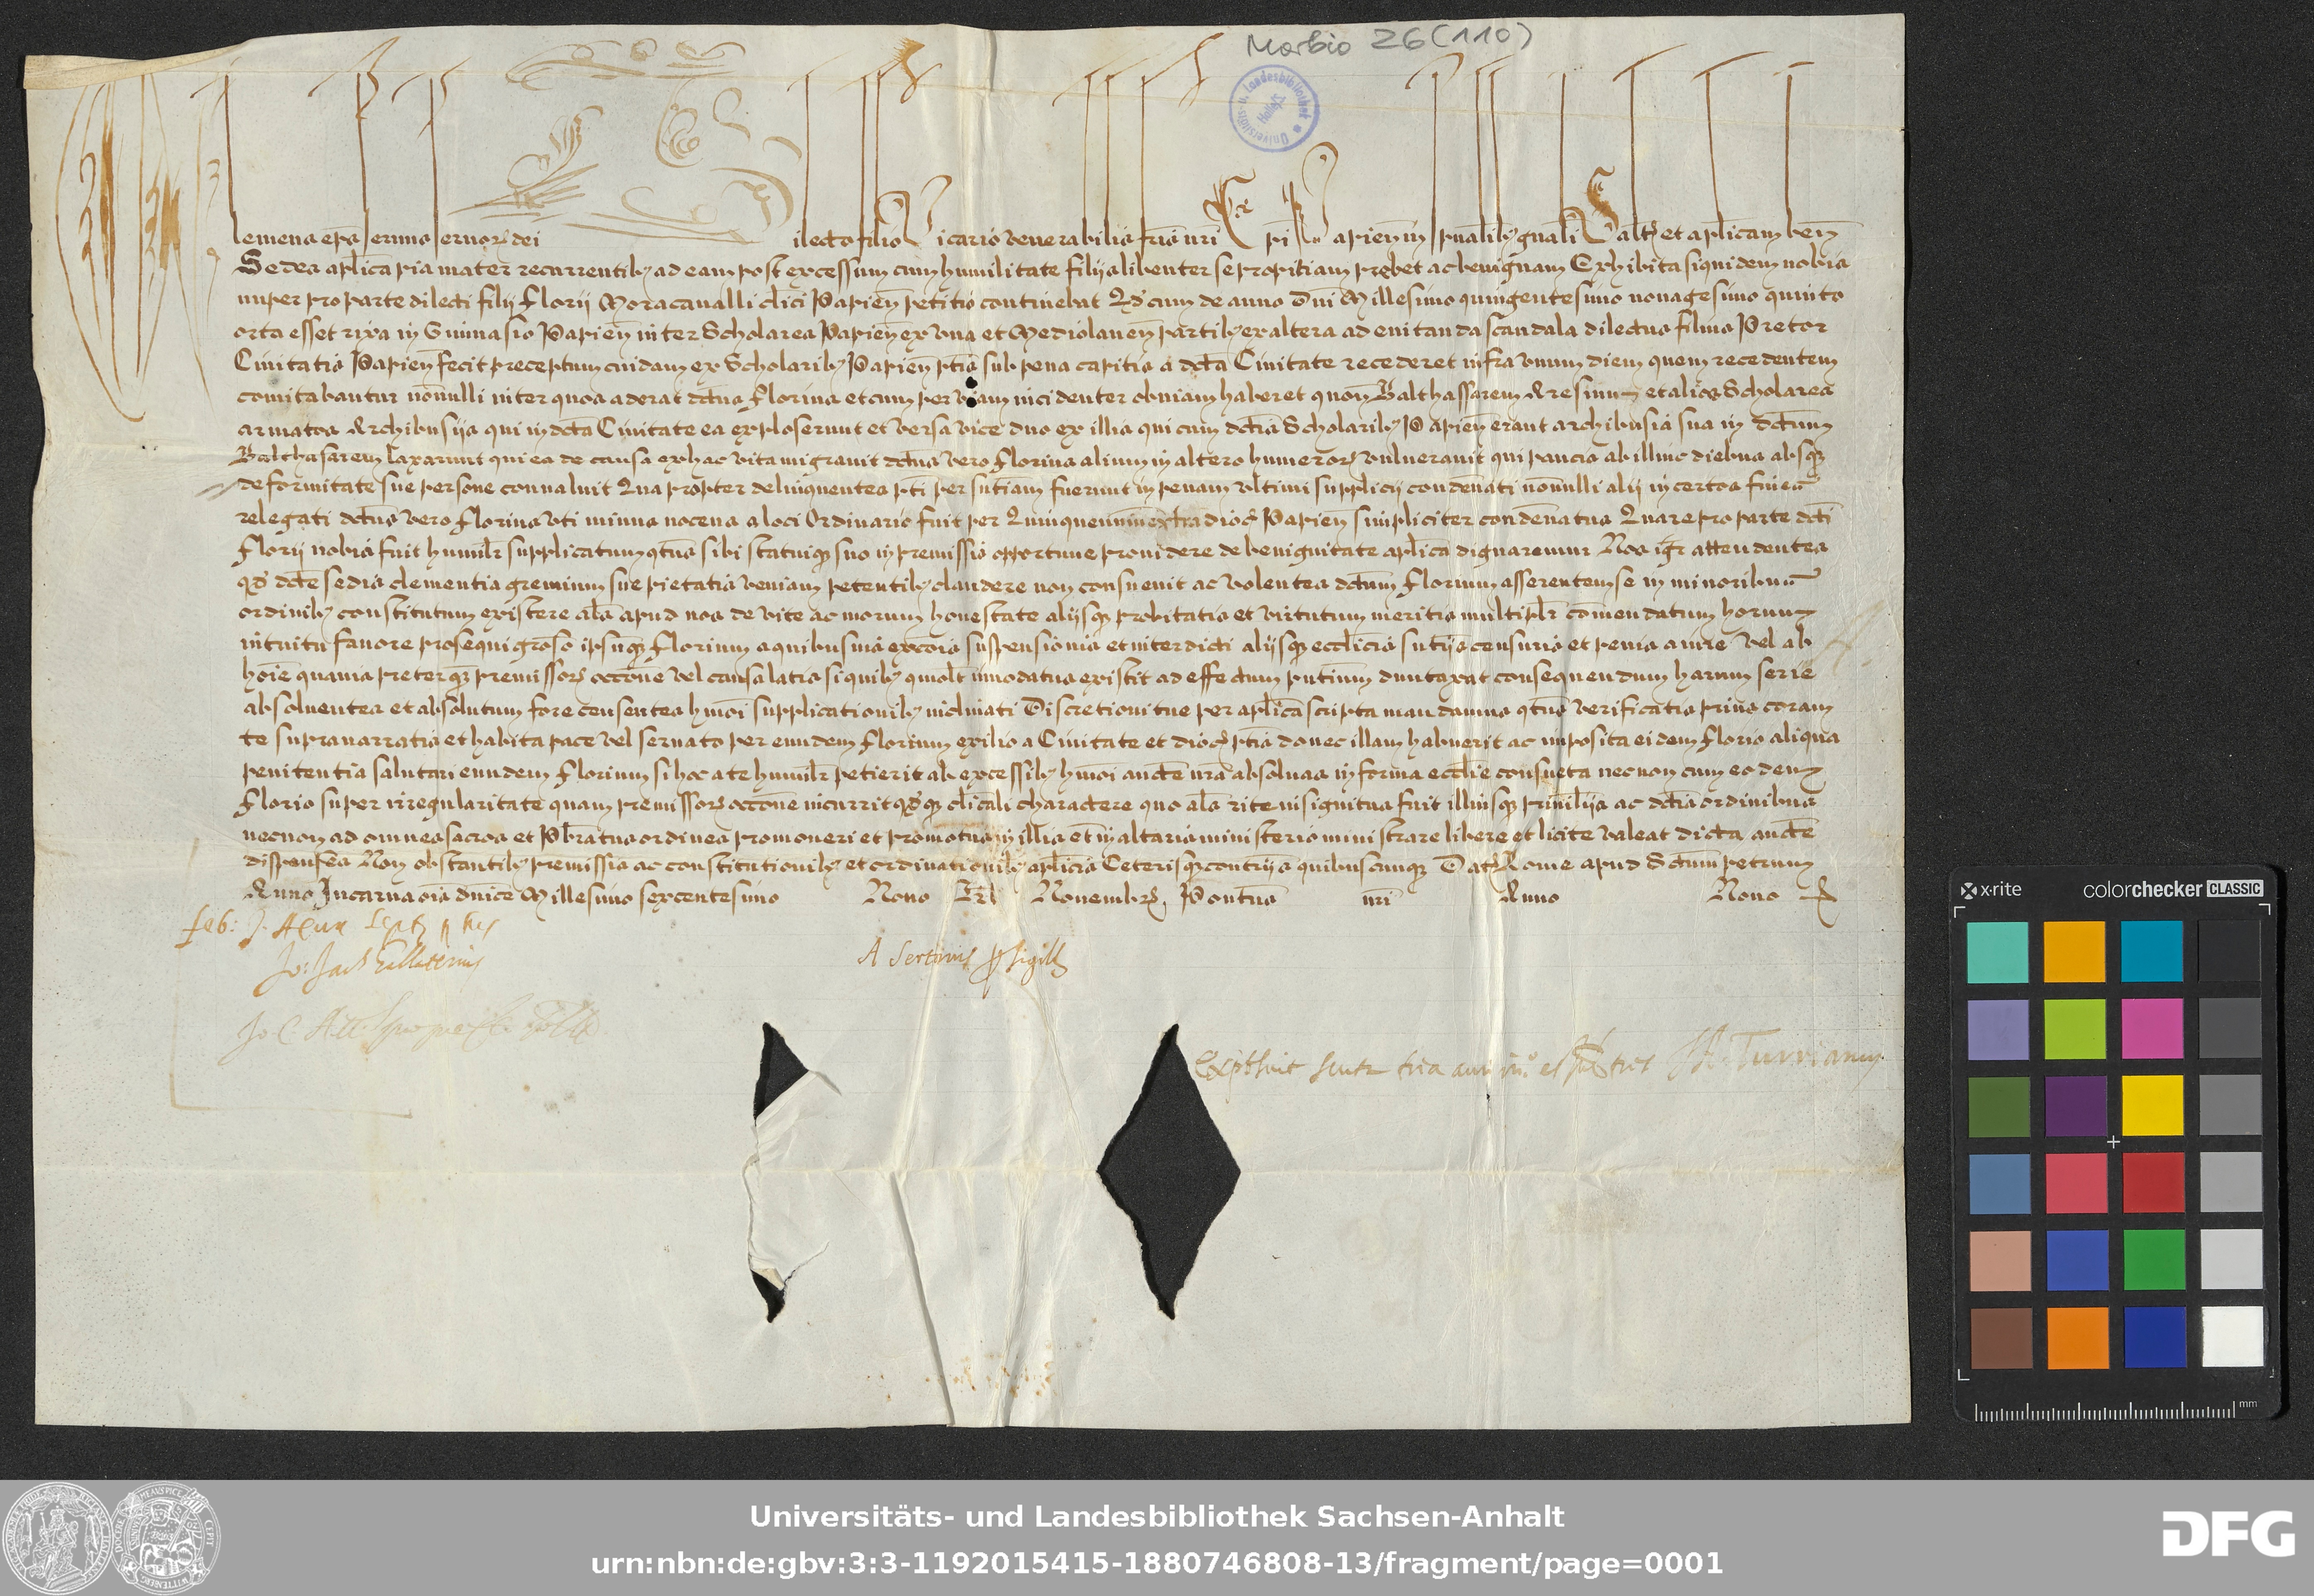 Morbio 26 (110)
Universitäts- u. Landesbibliothek Halle/S.
lemens eps servus servor dei ilecto filio Vicario venerabilis fris nri Epi Papien in spualibz gnali Saltm et aplicam ben
Sedes aplica pia mater recurrentibz ad eam post excessum cum humilitate filijs libenter se propitiam prebet ac benignam Exhibita siquidem nobis
nuper pro parte dilecti filij Florij Moracavalli clici Papien petitio continebat Qd cum de anno Dni Millesimo quingentesimo nonagesimo quinto
orta esset rixa in Gimnasio Papien inter Scholares Papien ex una et Mediolanen partibz ex altera ad evitanda scandala dilectus filius Pretor
Civitatis Papien fecit preceptum cuidam ex Scholaribz Papien ptis sub pena capitis a dcta Civitate recederet infra unum diem quem recedentem
comitabantur nonnulli inter quos aderat dctus Florius et cum per viam incidenter obviam haberet quon Balthassarem Aresinum et alios Scholares
armatos Archibusijs qui in dcta Civitate ea exploserunt et versa vice duo ex illis qui cum dctis Scholaribz Papien erant archibusia sua in dctum
Balthasarem laxarunt qui ea de causa ex hac vita migravit dctus vero Florius alium in altero humeror vulneravit qui paucis ab illinc diebus absqz
deformitate sue persone convaluit Qua propter delinquentes pti per sntiam fuerunt in penam ultimi supplicij condenati nonnulli alij in certos fines
relegati dctus vero Florius uti minus nocens a loci Ordinario fuit per Quinquennium extra dioc Papien simpliciter condenatus Quare pro parte dcti
Florij nobis fuit humilr supplicatum qtus sibi statuiqz suo in premissis opportune providere de benignitate aplica dignaremur Nos igr attendentes
qd dcte sedis clementia gremium sue pietatis veniam petentibz claudere non consuevit ac volentes dctum Florium asserentem se in minoribus
ordinibz constitutum existere als apud nos de vite ac morum honestate alijsqz probitatis et virtutum meritis multiplr comendatum horum
intuitu favore prosequi groso ipsumqz Florium a quibusvis excois suspensionis et interdicti alijsqz ecclicis sntijs censuris et penis a iure vel ab
hoie quavis preterqz premissor occone vel causa latis si quibz quolt innodatus existit ad effectum pntium duntaxat consequendum harum serie
absolventes et absolutum fore censentes hmoi supplicationibz inclinati Discretioni tue per aplica scripta mandamus qtus verificatis prius coram
te supranarratis et habita pace vel servato per eundem Florium exilio a Civitate et dioc ptis donec illam habuerit ac imposita eidem Florio aliqua
penitentia salutari eundem Florium si hoc a te humilr petierit ab excessibz hmoi aucte nra absolvas in forma ecclie consueta necnon cum eodem
Florio super irregularitate quam premissor occone incurrit qdqz clicali charactere quo als rite insignitus fuit illiusqz privilijs ac dctis ordinibus
necnon ad omnes sacros et Pbratus ordines promoveri et promotus in illis et in altaris ministerio ministrare libere et licite valeat dicta aucte
dispenses Non obstantibz premissis ac constitutionibz et ordinationibz aplicis Ceterisqz contrijs quibuscunqz Dat Rome apud Sctum Petrum
Anno Incarnaois dnice Millesimo sexcentesimo Nono Kl Novembr Pontus nri Anno Nono
feb:
A Sertorius p Sigill
A. Turrianus
Universitäts- und Landesbibliothek Sachsen-Anhalt
urn:nbn:de:gbv:3:3-1192015415-1880746808-13/fragment/page=0001
DFG
x-rite colorchecker CLASSIC
mm